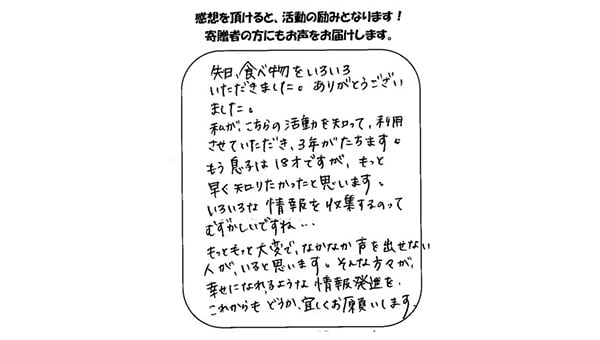 感想を頂けると、活動の励みとなります！
寄贈者の方にもお声をお届けします。
先日、食べ物をいろいろ
いただきました。ありがとうござい
ました。
私が、こちらの活動を知って、利用
させていただき、3年がたちます。
もう息子は18才ですが、もっと
早く知りたかったと思います。
いろいろな情報を収集するのって
むずかしいですね…
もっともっと大変で、なかなか声を出せない
人が、いると思います。そんな方々が、
幸せになれるような情報発進を、
これからもどうか、宜しくお願いします。